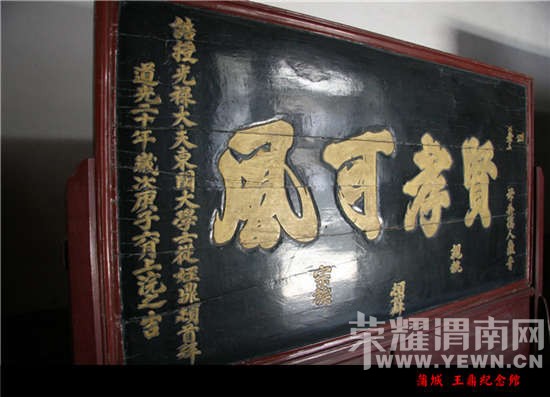 賢孝可風
誥授光祿大夫東閣大學士從姪鼎頓首拜
道光二十年歲次庚子六月上浣之吉
荣耀渭南网
WWW.YEWN.CN
蒲城 王鼎纪念馆